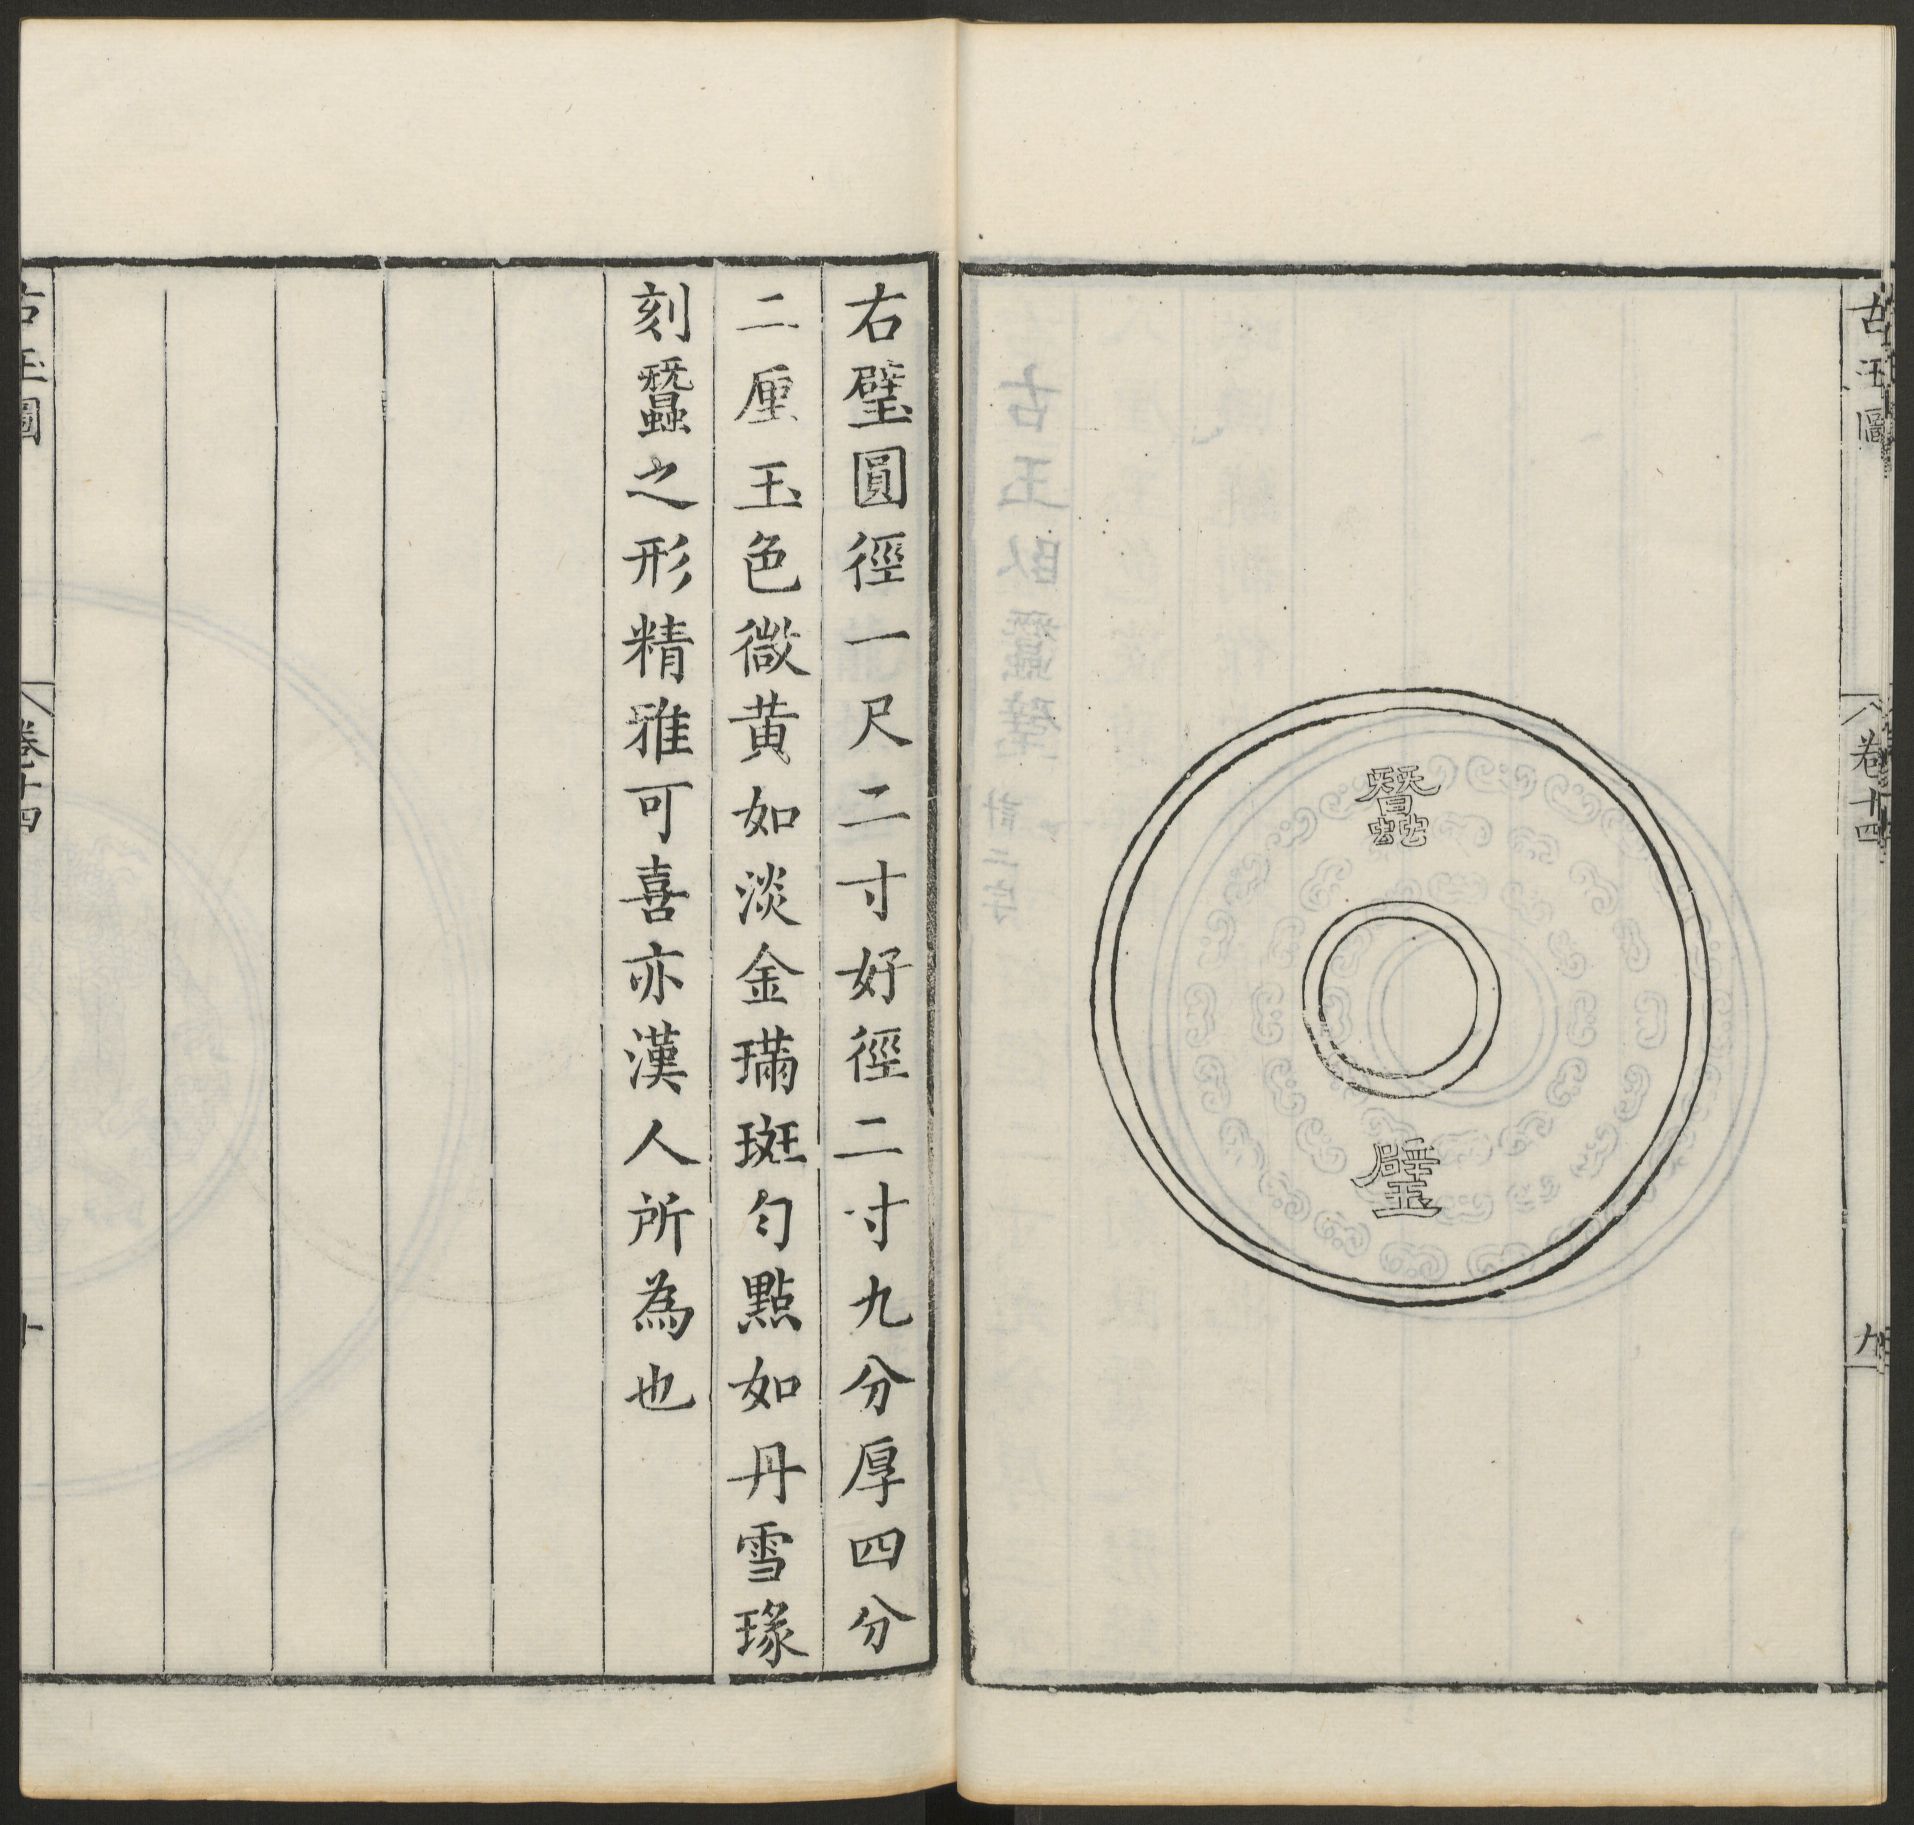 古玉圖
卷十四
九
蠶
璧
右璧圓徑一尺二寸好徑二寸九分厚四分
二厘玉色微黃如淡金璊斑勻點如丹雪瑑
刻蠶之形精雅可喜亦漢人所為也
古玉圖
卷十四
十